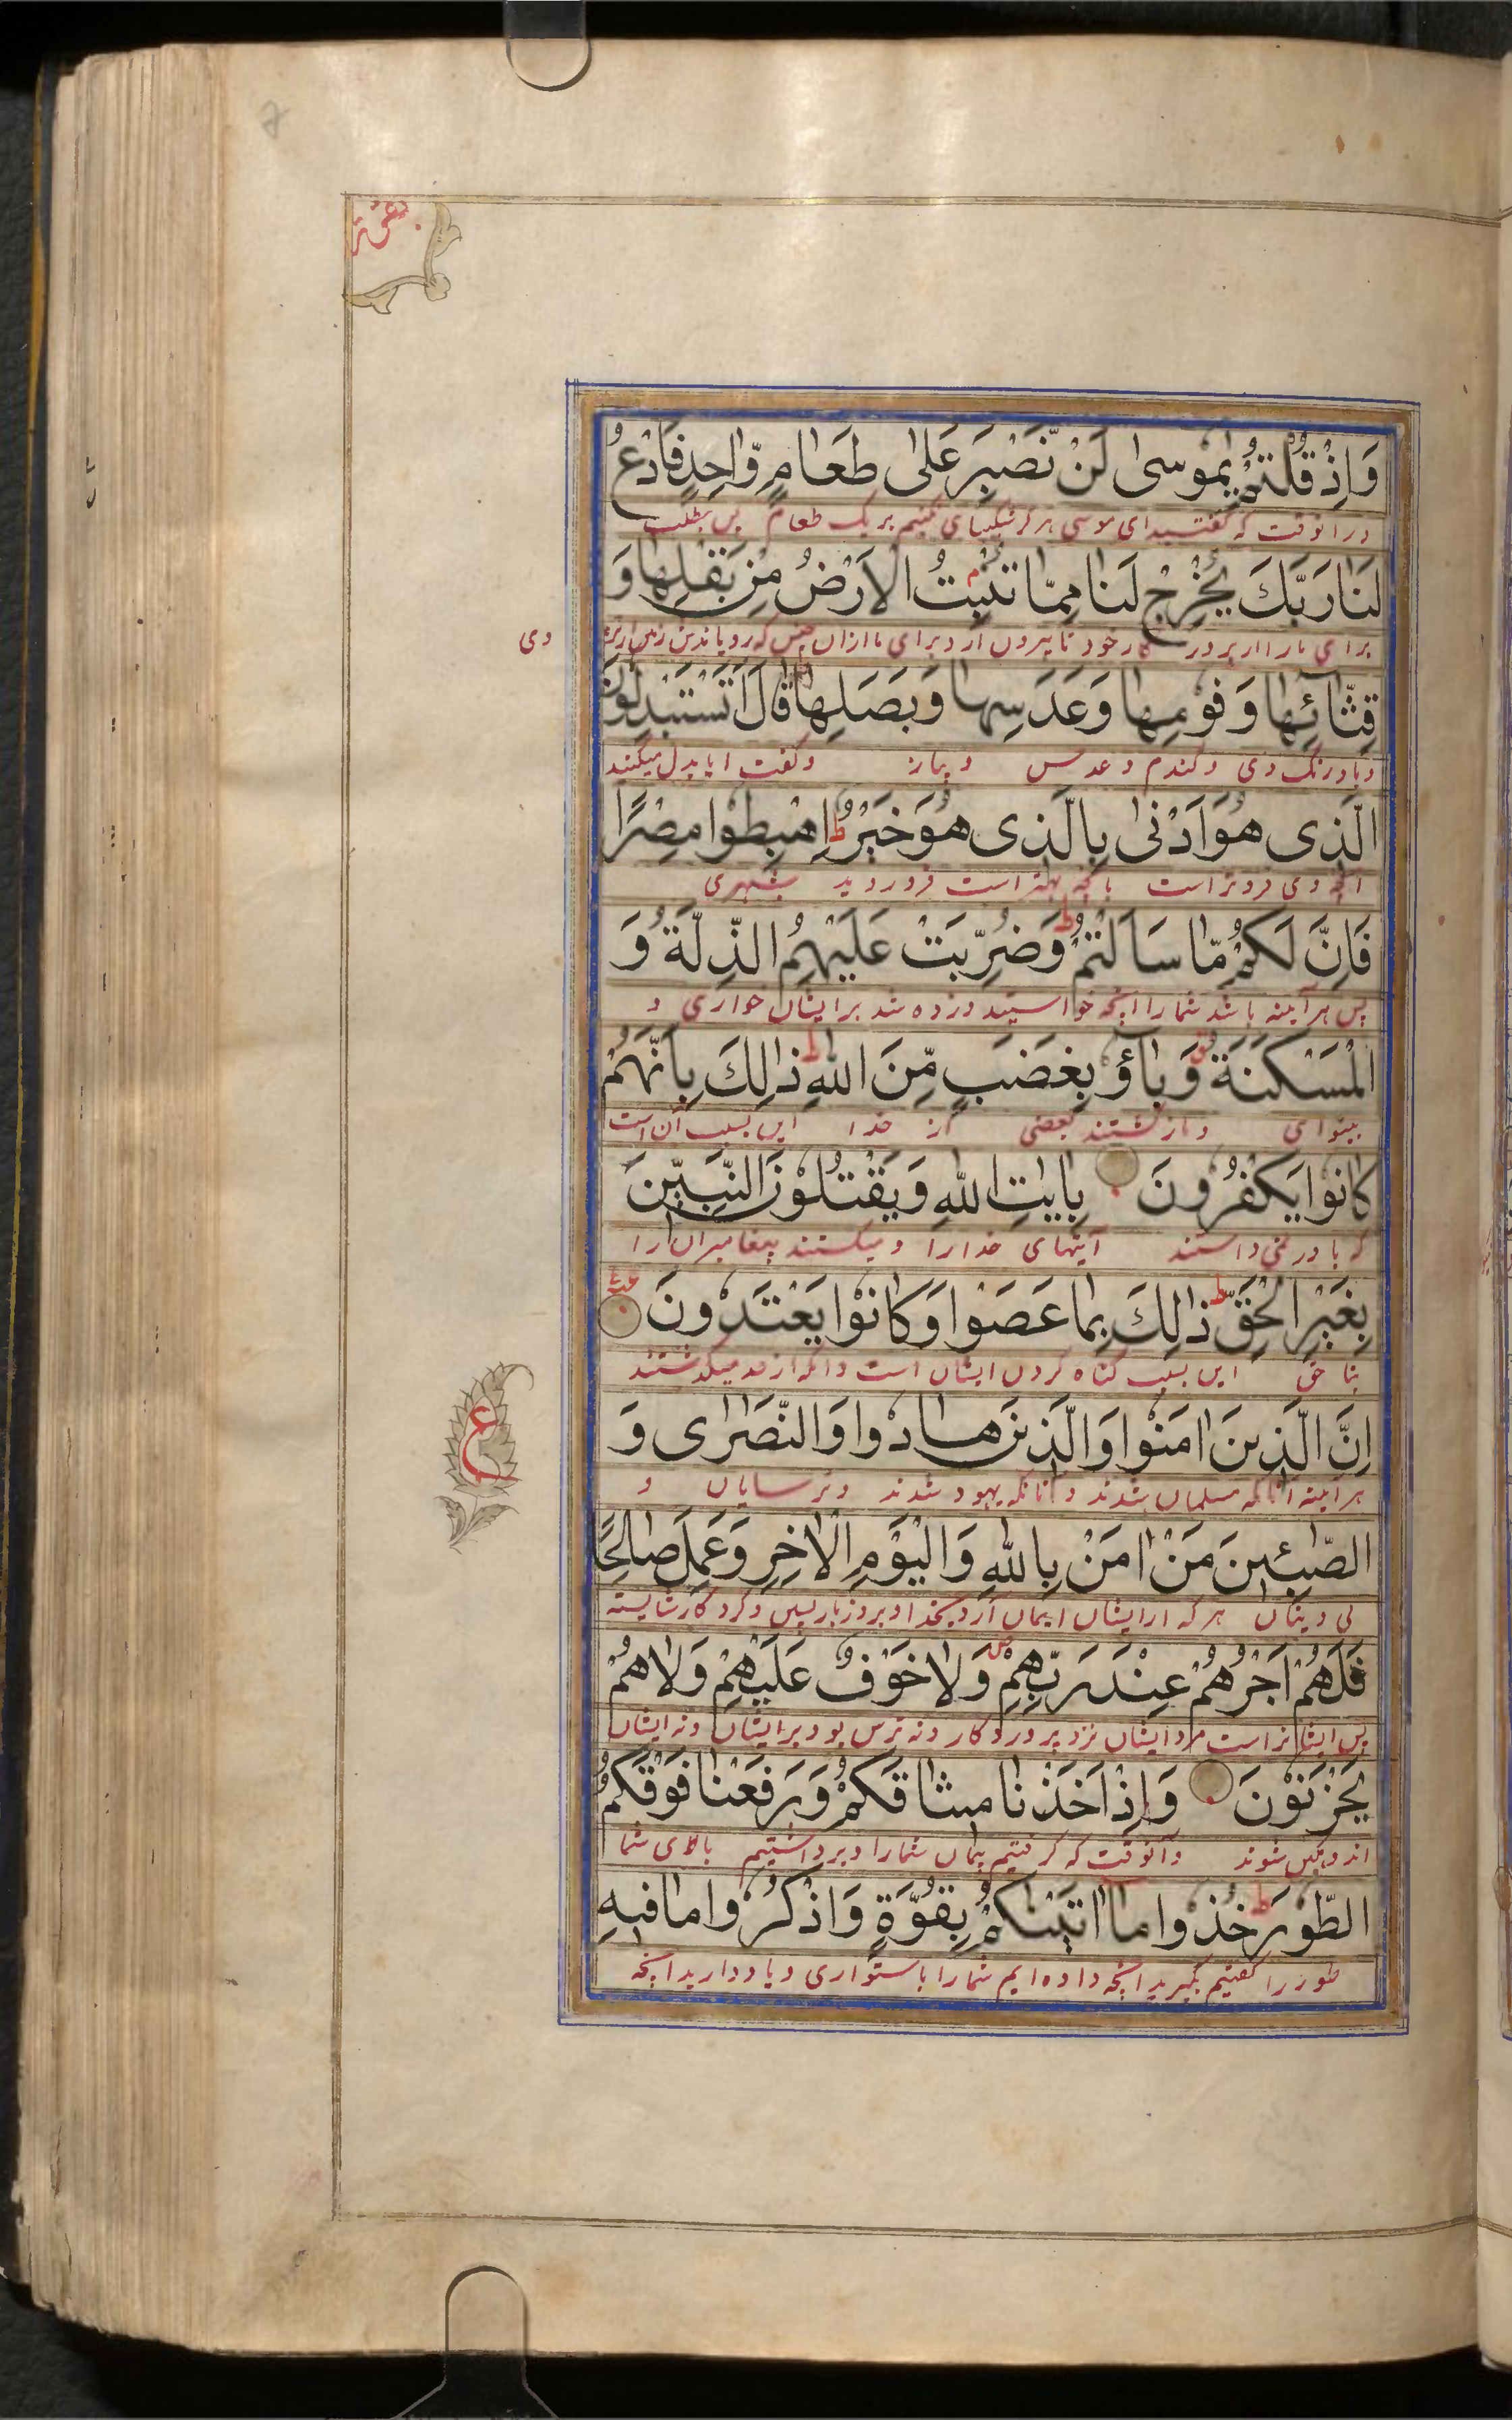 وَاِذْ قُلْتُمْ يٰمُوسىٰ لَنْ نَّصْبِرَ عَلىٰ طَعَامٍ وَّاحِدٍ فَادْعُ
در انوقت که گفتید ای موسی هرگز شکیبای نکنیم بر یک طعام پس بطلب
لَنَا رَبَّكَ يُخْرِجْ لَنَا مِمَّا تُنْبِتُ الْاَرْضُ مِنْ بَقْلِهَا وَ
برای ما از پروردکار خود تا بیرون آرد برای ما ازان جنس که رویاندش زمین از تره
وی
قِثَّائِهَا وَفُوْمِهَا وَعَدَسِهَا وَبَصَلِهَا قَالَ اَتَسْتَبْدِلُوْنَ
و بادرنگ وی و گندم و عدس و پیاز و گفت ایا بدل میکنند
الَّذِى هُوَ اَدْنىٰ بِالَّذِى هُوَ خَيْرٌ ط اِهْبِطُوْا مِصْرًا
آنچه وی فروتر است بانچه بهتر است فرو روید بشهری
فَاِنَّ لَكُمْ مَّا سَاَلْتُمْ ط وَضُرِبَتْ عَلَيْهِمُ الذِّلَّةُ وَ
پس هر آینه باشد شما را انچه خواستید و زده شد بر ایشان خواری و
الْمَسْكَنَةُ وَبَاؤُ بِغَضَبٍ مِّنَ اللهِ ط ذٰلِكَ بِاَنَّهُمْ
بینوای و بازگشتند بغضبی از خدا این بسبب آن است
كَانُوْا يَكْفُرُوْنَ بِاٰيٰتِ اللهِ وَيَقْتُلُوْنَ النَّبِيّٖنَ
که باور نمی داشتند آیتهای خدا را و میکشتند پیغامبران را
بِغَيْرِ الْحَقِّ ط ذٰلِكَ بِمَا عَصَوْا وَكَانُوْا يَعْتَدُوْنَ
بنا حق این بسبب گناه کردن ایشان است و انکه از حد میگذشتند
ع
اِنَّ الَّذِيْنَ اٰمَنُوْا وَالَّذِيْنَ هَادُوا وَالنَّصٰرٰى وَ
هر آینه آنانکه مسلمان شدند و آنانکه یهود شدند و ترسایان و
الصّٰبِئِيْنَ مَنْ اٰمَنَ بِاللهِ وَالْيَوْمِ الْاٰخِرِ وَعَمِلَ صَالِحًا
بی دینان هر که از ایشان ایمان آرد بخدا و بروز باز پسین و کرد کار شایسته
فَلَهُمْ اَجْرُهُمْ عِنْدَ رَبِّهِمْ وَلَا خَوْفٌ عَلَيْهِمْ وَلَا هُمْ
پس ایشانراست مزد ایشان نزد پروردکار و نه ترس بود بر ایشان و نه ایشان
يَحْزَنُوْنَ وَاِذْ اَخَذْنَا مِيْثَاقَكُمْ وَرَفَعْنَا فَوْقَكُمُ
اندوهگین شوند و آنوقت که گرفتیم پیمان شما را و برداشتیم بالای شما
الطُّوْرَ ط خُذُوا مَا اٰتَيْنٰكُمْ بِقُوَّةٍ وَاذْكُرُوا مَا فِيْهِ
طور را گفتیم بگیرید انچه داده ایم شما را باستواری و یاد دارید انچه